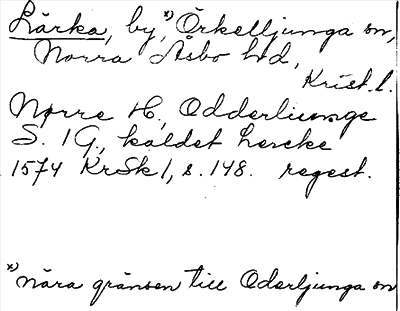 Lärka, by, *) Örkelljunga sn,
Norra Åsbo hd,
Krist. l.
Nørre H., Odderliunge
S. 1 G., kaldet Lercke
1574 KrSk 1, s. 148. regest.
*) nära gränsen till Oderljunga sn